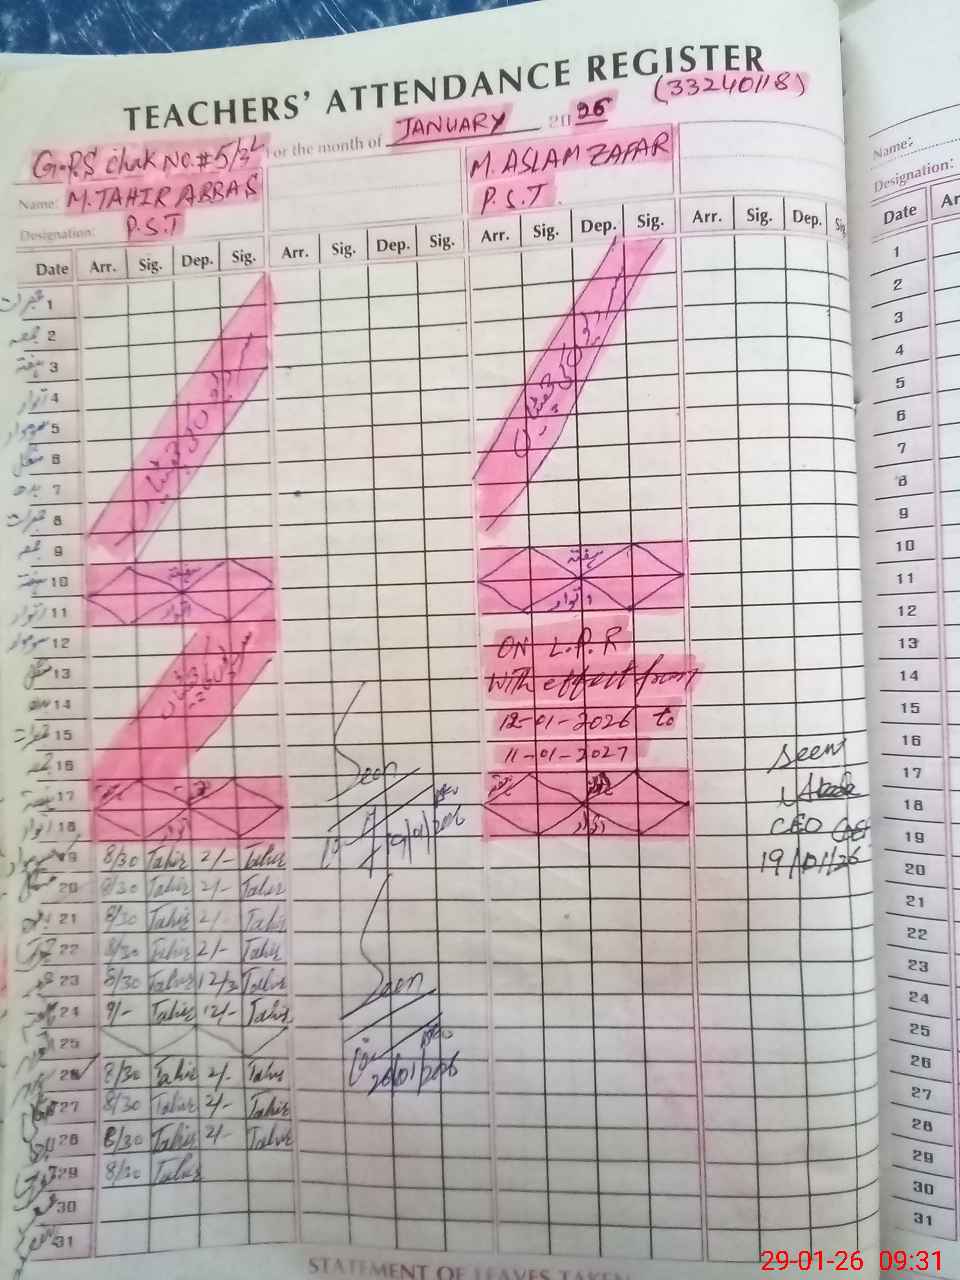 TEACHERS' ATTENDANCE REGISTER
(33240118)
For the month of JANUARY 2026
G.P.S Chak NO.# 5/3L
Name: M. TAHIR ABBAS
M. ASLAM ZAFAR
Designation: P.S.T
P.S.T
Date Arr. Sig. Dep. Sig. Arr. Sig. Dep. Sig. Arr. Sig. Dep. Sig. Arr. Sig. Dep. Sig.
جمعرات 1
جمعہ 2
ہفتہ 3
اتوار 4
سوموار 5
منگل 6
بدھ 7
جمعرات 8
جمعہ 9
ہفتہ 10 ہفتہ ہفتہ
اتوار 11 اتوار اتوار
سوموار 12
منگل 13 ON L.P.R
14 With effect from
15 12-01-2026 to
16 11-01-2027
17 ہفتہ
18 اتوار اتوار
19 8/30 Tahir 2/- Tahir
20 8/30 Tahir 2/- Tahir
21 8/30 Tahir 2/- Tahir
22 8/30 Tahir 2/- Tahir
23 8/30 Tahir 12/3 Tahir
24 9/- Tahir 12/- Tahir
25
26 8/30 Tahir 2/- Tahir
27 8/30 Tahir 2/- Tahir
28 8/30 Tahir 2/- Tahir
29 8/30 Tahir
30
31
Seen
19/01/2026
Seen
26/01/2026
Seen
CEO
19/01/26
STATEMENT OF LEAVES TAKEN
Name:
Designation:
Date Ar
1
2
3
4
5
6
7
8
9
10
11
12
13
14
15
16
17
18
19
20
21
22
23
24
25
26
27
28
29
30
31
29-01-26 09:31